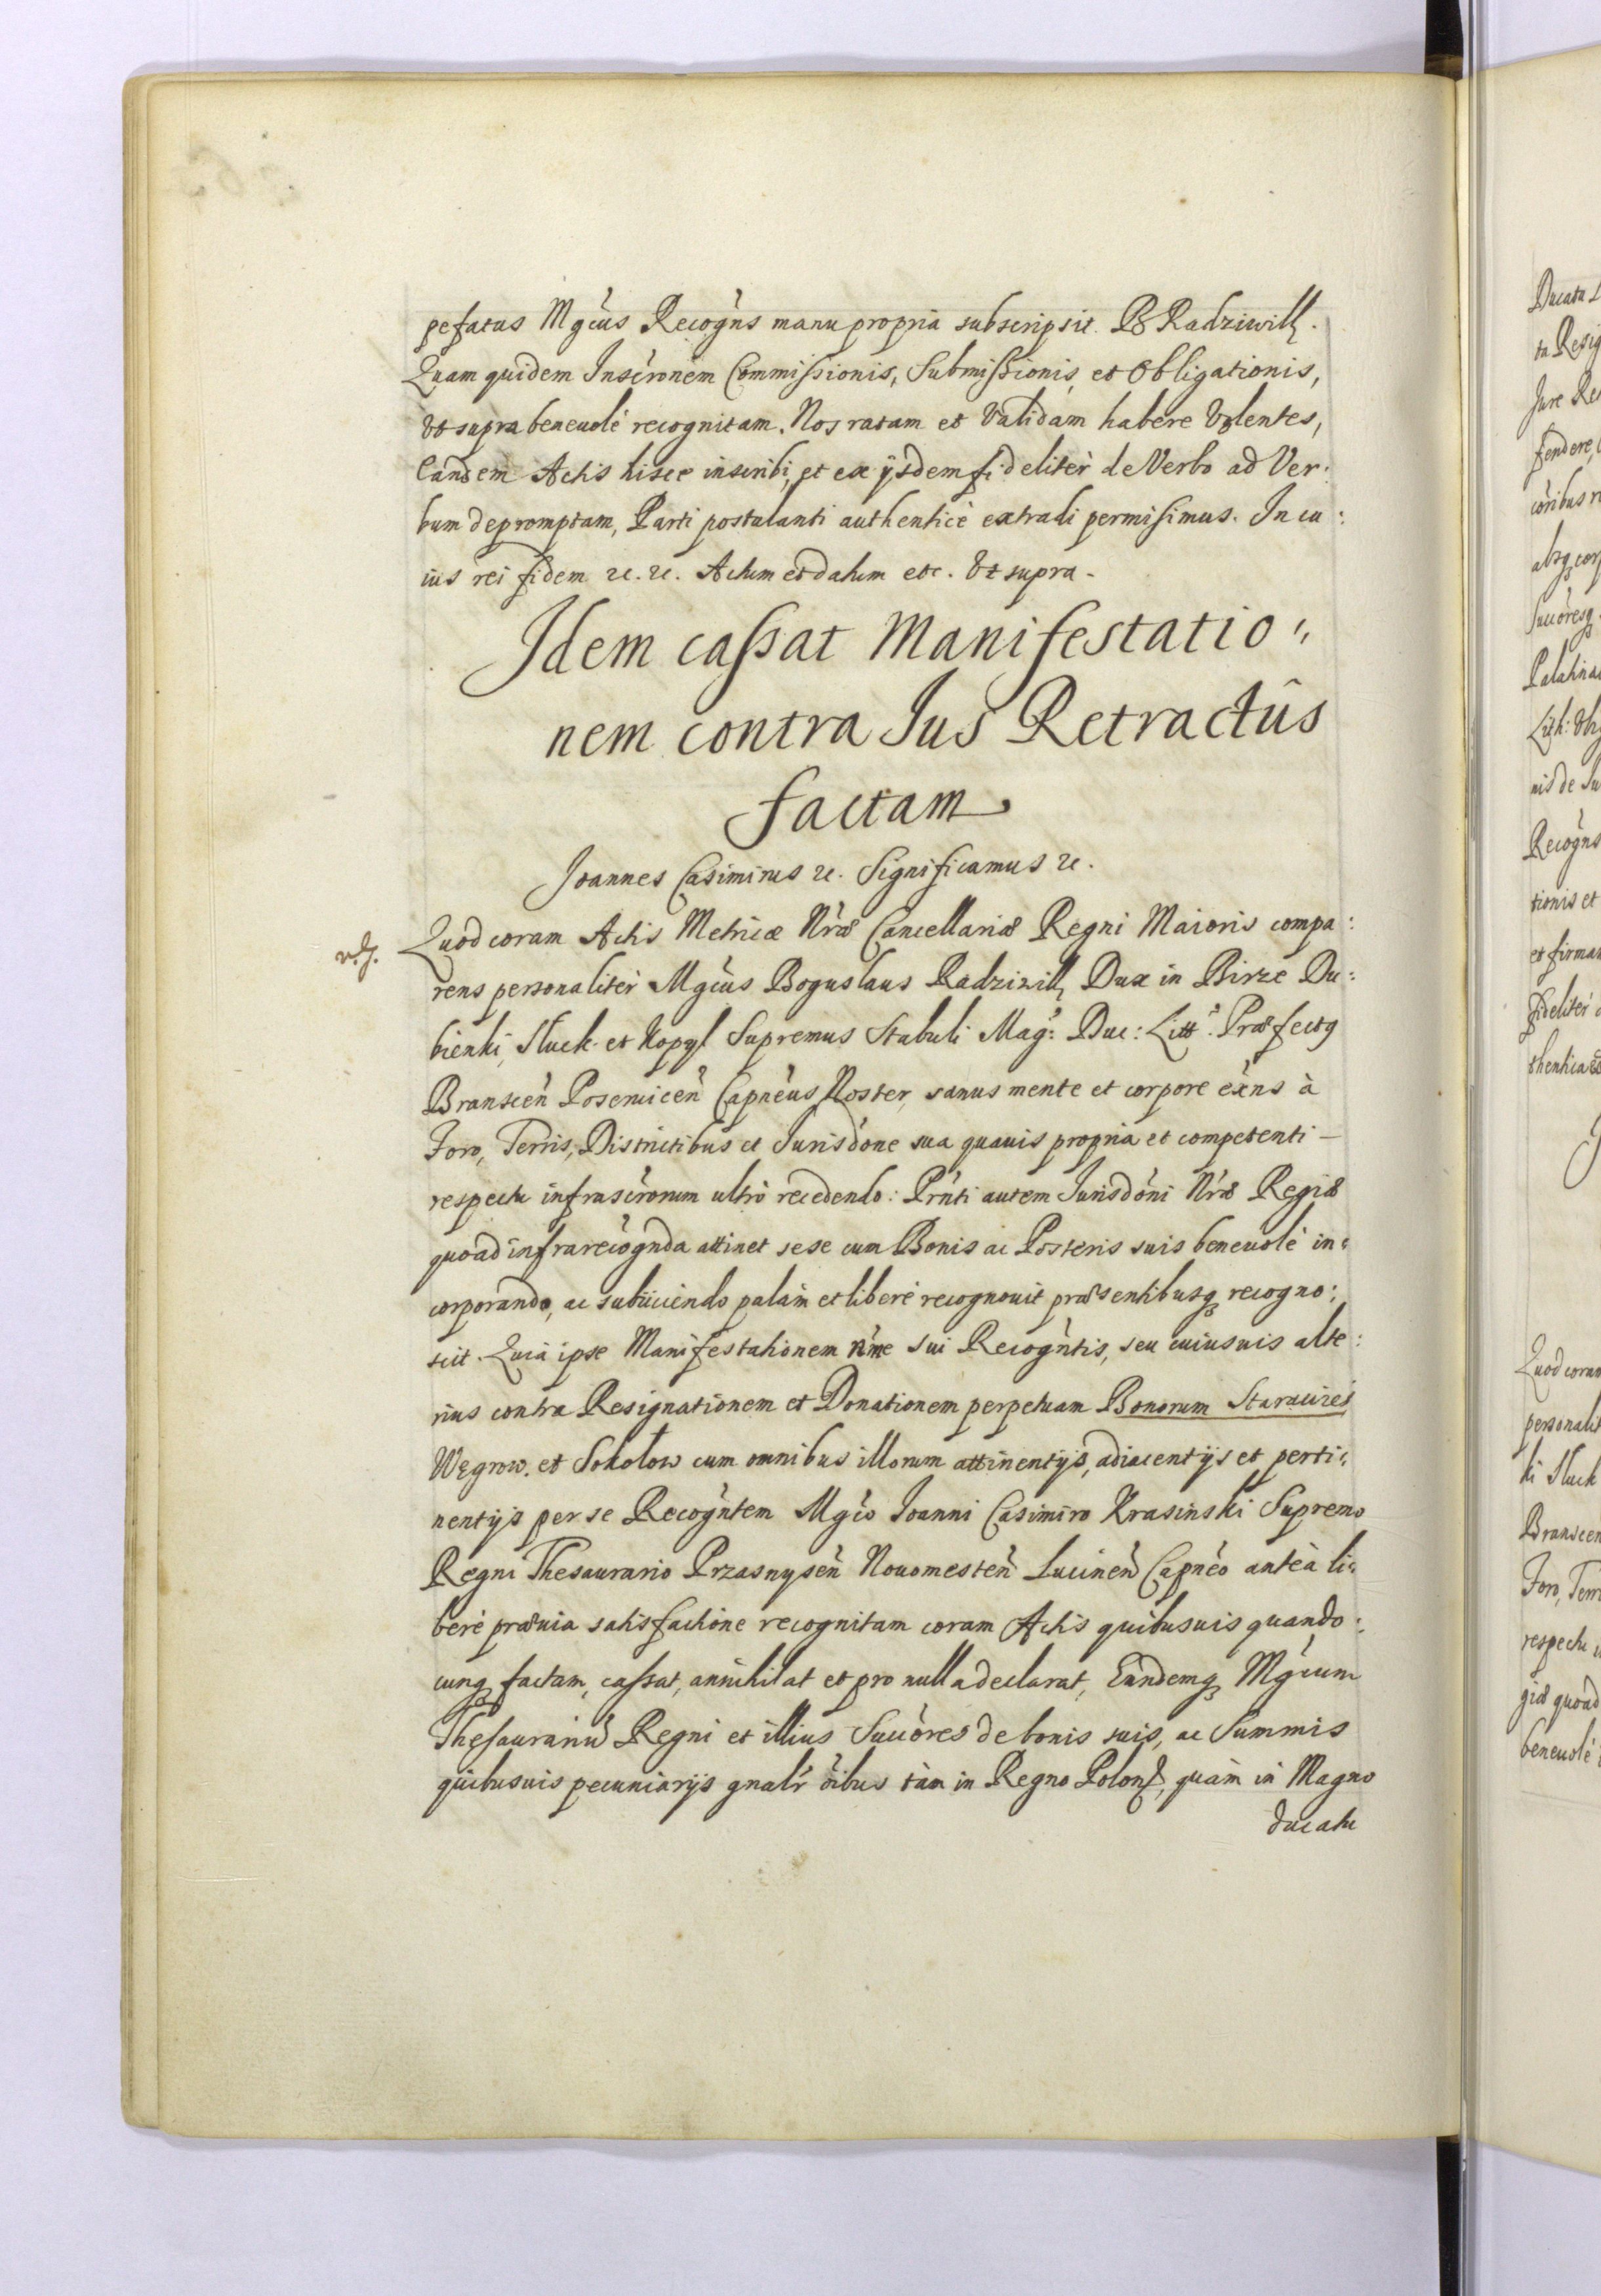 pefatus Mgcus Recogns manu propria subscripsit. B Radziwill.
Quam quidem Inscronem Commissionis, Submissionis, et Obligationis,
Vt supra beneuole recognitam. Nos ratam et Validam habere Volentes,
Eandem Actis hisce inscribi, et ex ijsdem fideliter de Verbo ad Ver:
bum depromptam, Parti postulanti authenticè extradi permisimus. In cu:
ius rei fidem etc. etc. Actum et datum etc. Vt supra.
Idem cassat Manifestatio:
nem contra Jus Retractûs
factam
Joannes Casimirus etc. Significamus etc.
Quod coram Actis Metricæ Nræ Cancellariæ Regni Maioris compa:
rens personaliter Mgcus Boguslaus Radziwill Dux in Birze Du:
bienki, Sluck et Kopyl Supremus Stabuli Mag: Duc: Litt: Præfectus
Branscen Posernicen Capneus Noster, sanus mente et corpore exns à
Foro, Terris, Districtibus et Jurisdone sua quauis propria et competenti
respectu infrascronum ultrò recedendo: Prnti autem Jurisdoni Nræ Regiæ
quoad infrarecognda attinet sese cum Bonis ac Posteris suis beneuolè in:
corporando, ac subiiciendo palàm et liberè recognouit præsentibusq recogno:
scit. Quia ipse Manifestationem nine sui Recogntis, seu cuiusuis alte:
rius contra Resignationem et Donationem perpetuam Bonorum Starawieś
Węgrow. et Sokołow cum omnibus illorum attinentijs, adiacentijs et perti:
nentijs per se Recogntem Mgco Joanni Casimiro Krasinski Supremo
Regni Thesaurario Przasnysen Nouomesten Lucinen Capneo anteà li:
berè præuia satisfactione recognitam coram Actis quibusuis quando:
cunq factam, cassat, annihilat et pro nulla declarat, Eundemq Mgcum
Thesaurariu Regni et illius Succores de bonis suis, ac Summis
quibusuis pecuniarijs gnalr oibus tàm in Regno Polon, quàm in Magno
ducatu